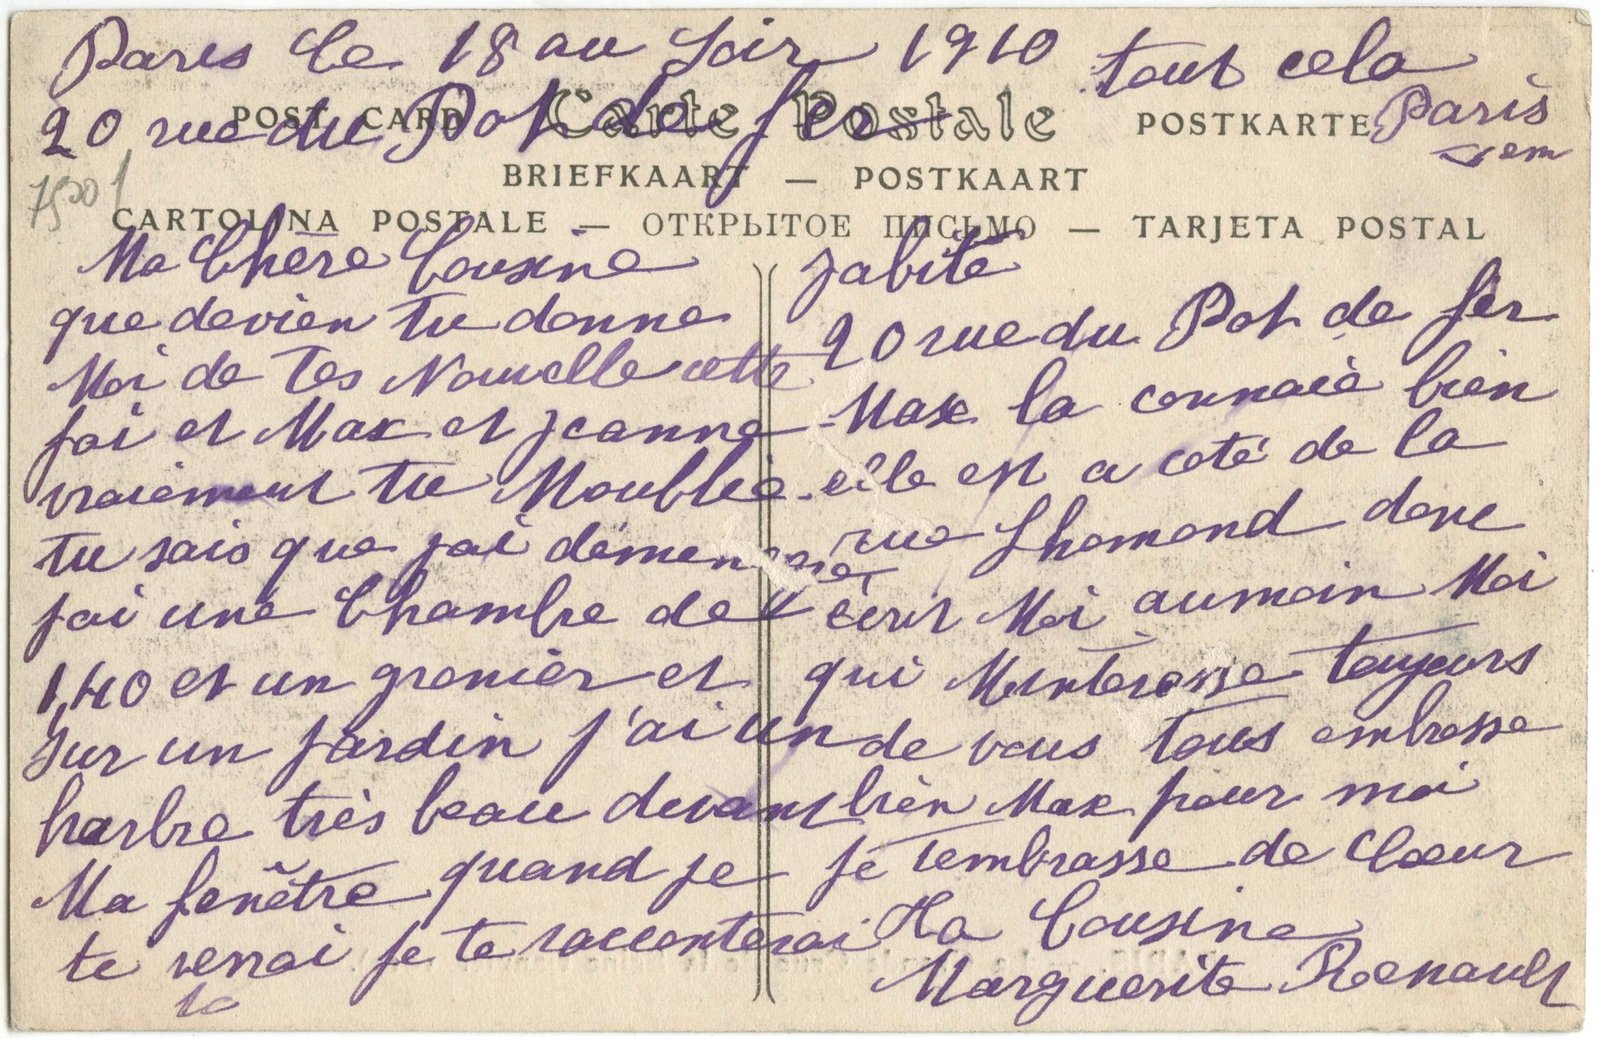 Paris le 18 au soir 1910
20 rue du Pot de fer
tout cela
Paris
vem
POST CARD Carte Postale POSTKARTE
BRIEFKAART — POSTKAART
CARTOLINA POSTALE — ОТКРЫТОЕ ПИСЬМО — TARJETA POSTAL
Ma Chère Cousine
que devien tu donne
Moi de Tes Nouvelle cette
foi et Max et Jeanne
vraiement tu Moublié
tu sais que jai démenager
jai une Chambre de
1,40 et un grenier et
sur un jardin j'ai un
harbre très beau devant
Ma fenêtre quand je
te verrai je te racconterai
la
jabite
20 rue du Pot de fer
Max la connaiè bien
elle est a coté de la
rue Lhomond donc
écrit Moi aumoin Moi
qui Minteresse toujours
de vous tous embrasse
bien Max pour moi
je tembrasse de Cœur
Ta Cousine
Marguerite Renault